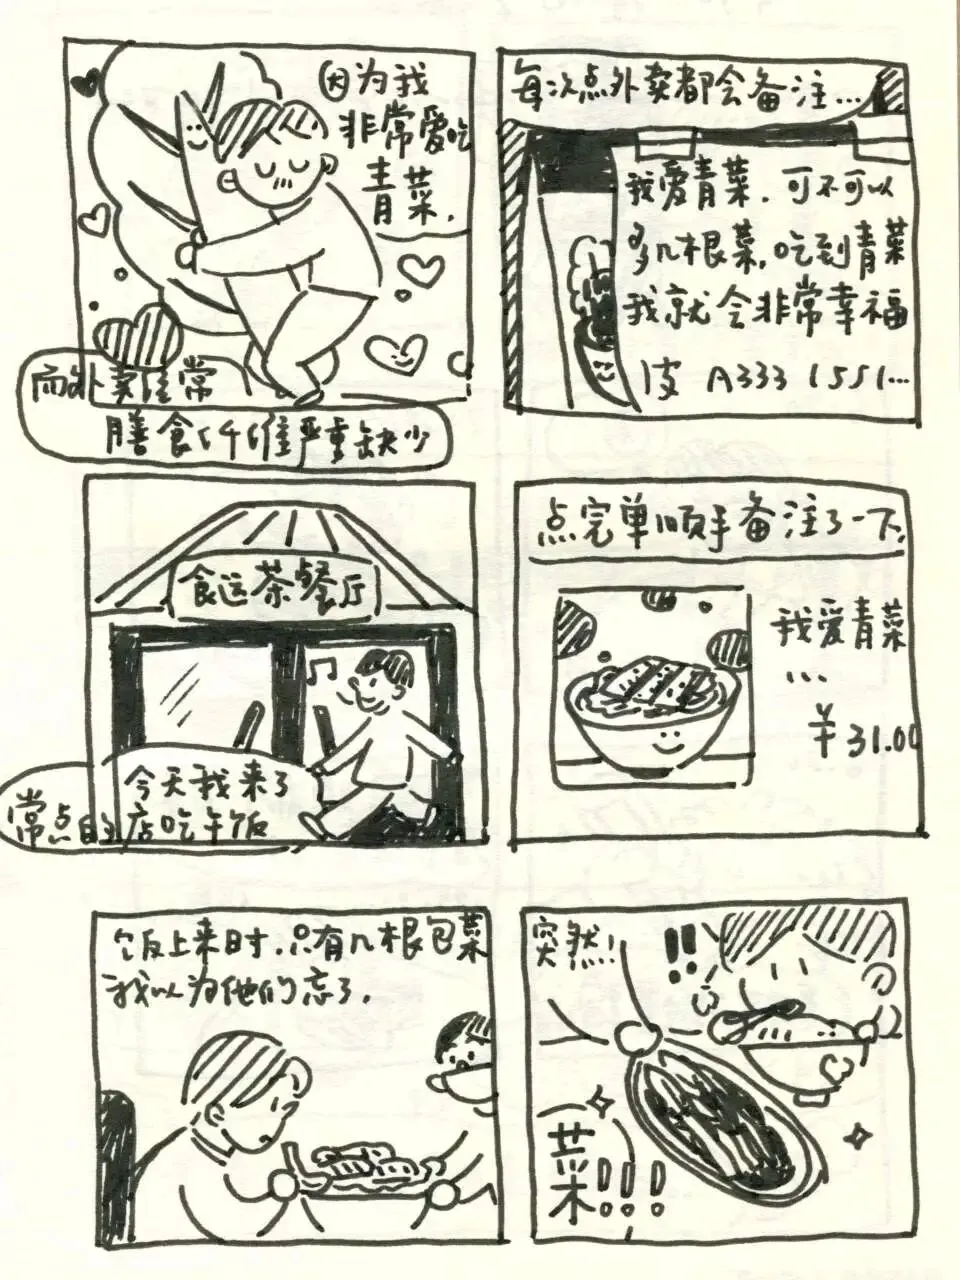 因为我
非常爱吃
青菜，
而外卖经常
膳食纤维严重缺少
每次点外卖都会备注…
我爱青菜，可不可以
多几根菜，吃到青菜
我就会非常幸福
A333 1551…
食运茶餐厅
今天我来了
常点的店吃午饭
点完单顺手备注了一下，
我爱青菜
…
¥31.00
饭上来时，只有几根包菜
我以为他们忘了，
突然！
!!
菜!!!